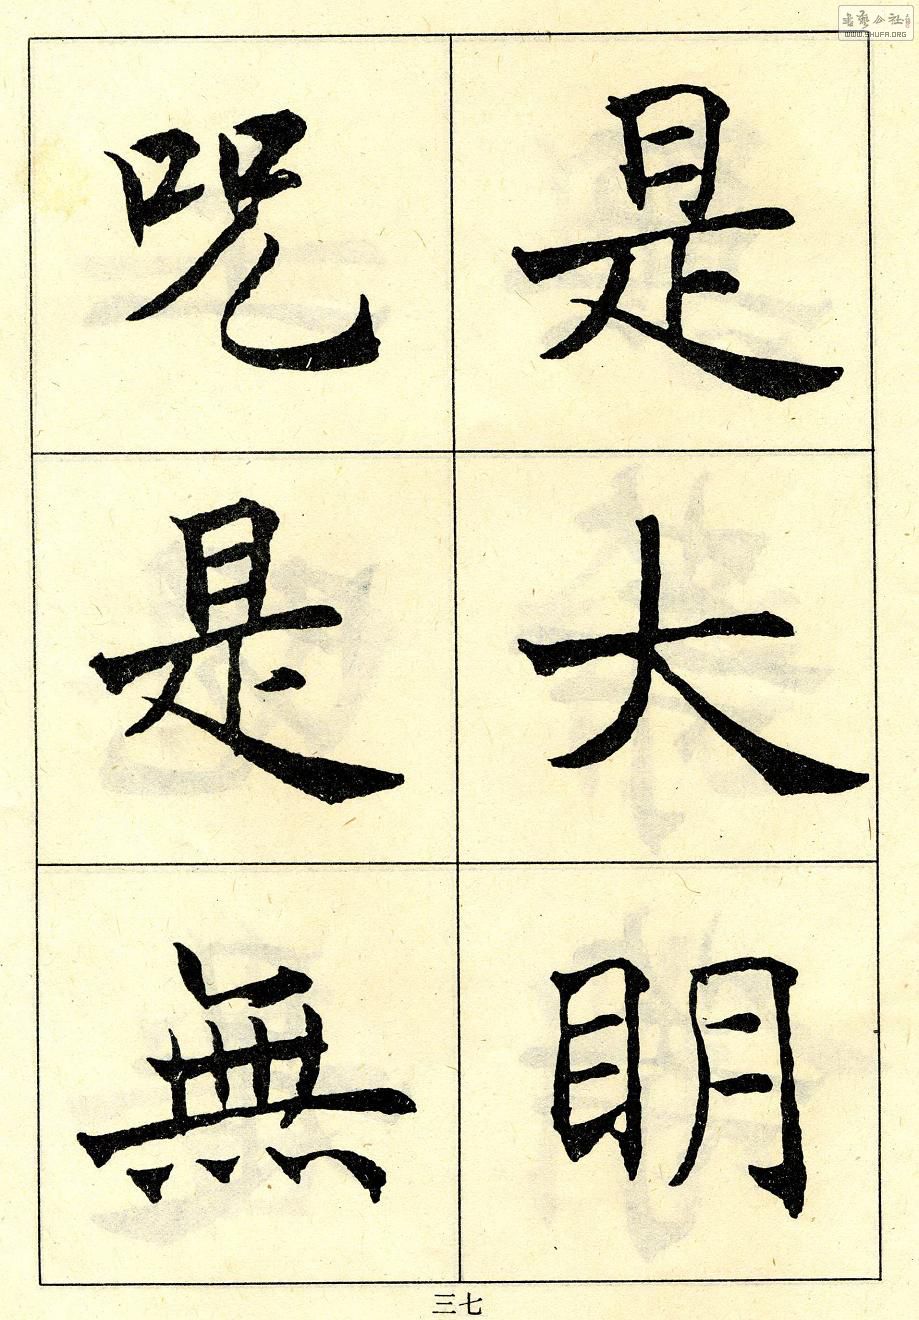 是大明
咒是無
三七
書藝公社
WWW.SHUFA.ORG